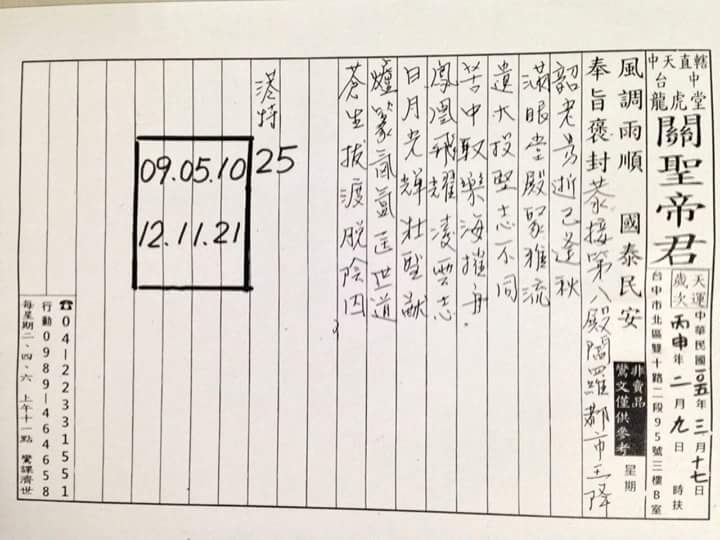 中天直轄
台中
龍虎堂
關聖帝君
天運中華民國一百五年三月十七日
歲次丙申年二月九日 時扶
台中市北區雙十路二段95號三樓B室
風調雨順 國泰民安
非賣品
鸞文僅供參考
星期
奉旨褒封恭接第八殿閻羅都市王降
韶老易逝已逢秋
滿眼堂殿聚雅流
遺大投堅志不同
苦中取樂海撑舟
鳳凰飛耀凌雲志
日月光輝壯聖猷
爐篆氤氳匡世道
蒼生拔渡脫陰囚
港特 25
09.05.10
12.11.21
☎04-22331551
行動0989-464658
每星期二、四、六 上午十一點 鸞課濟世